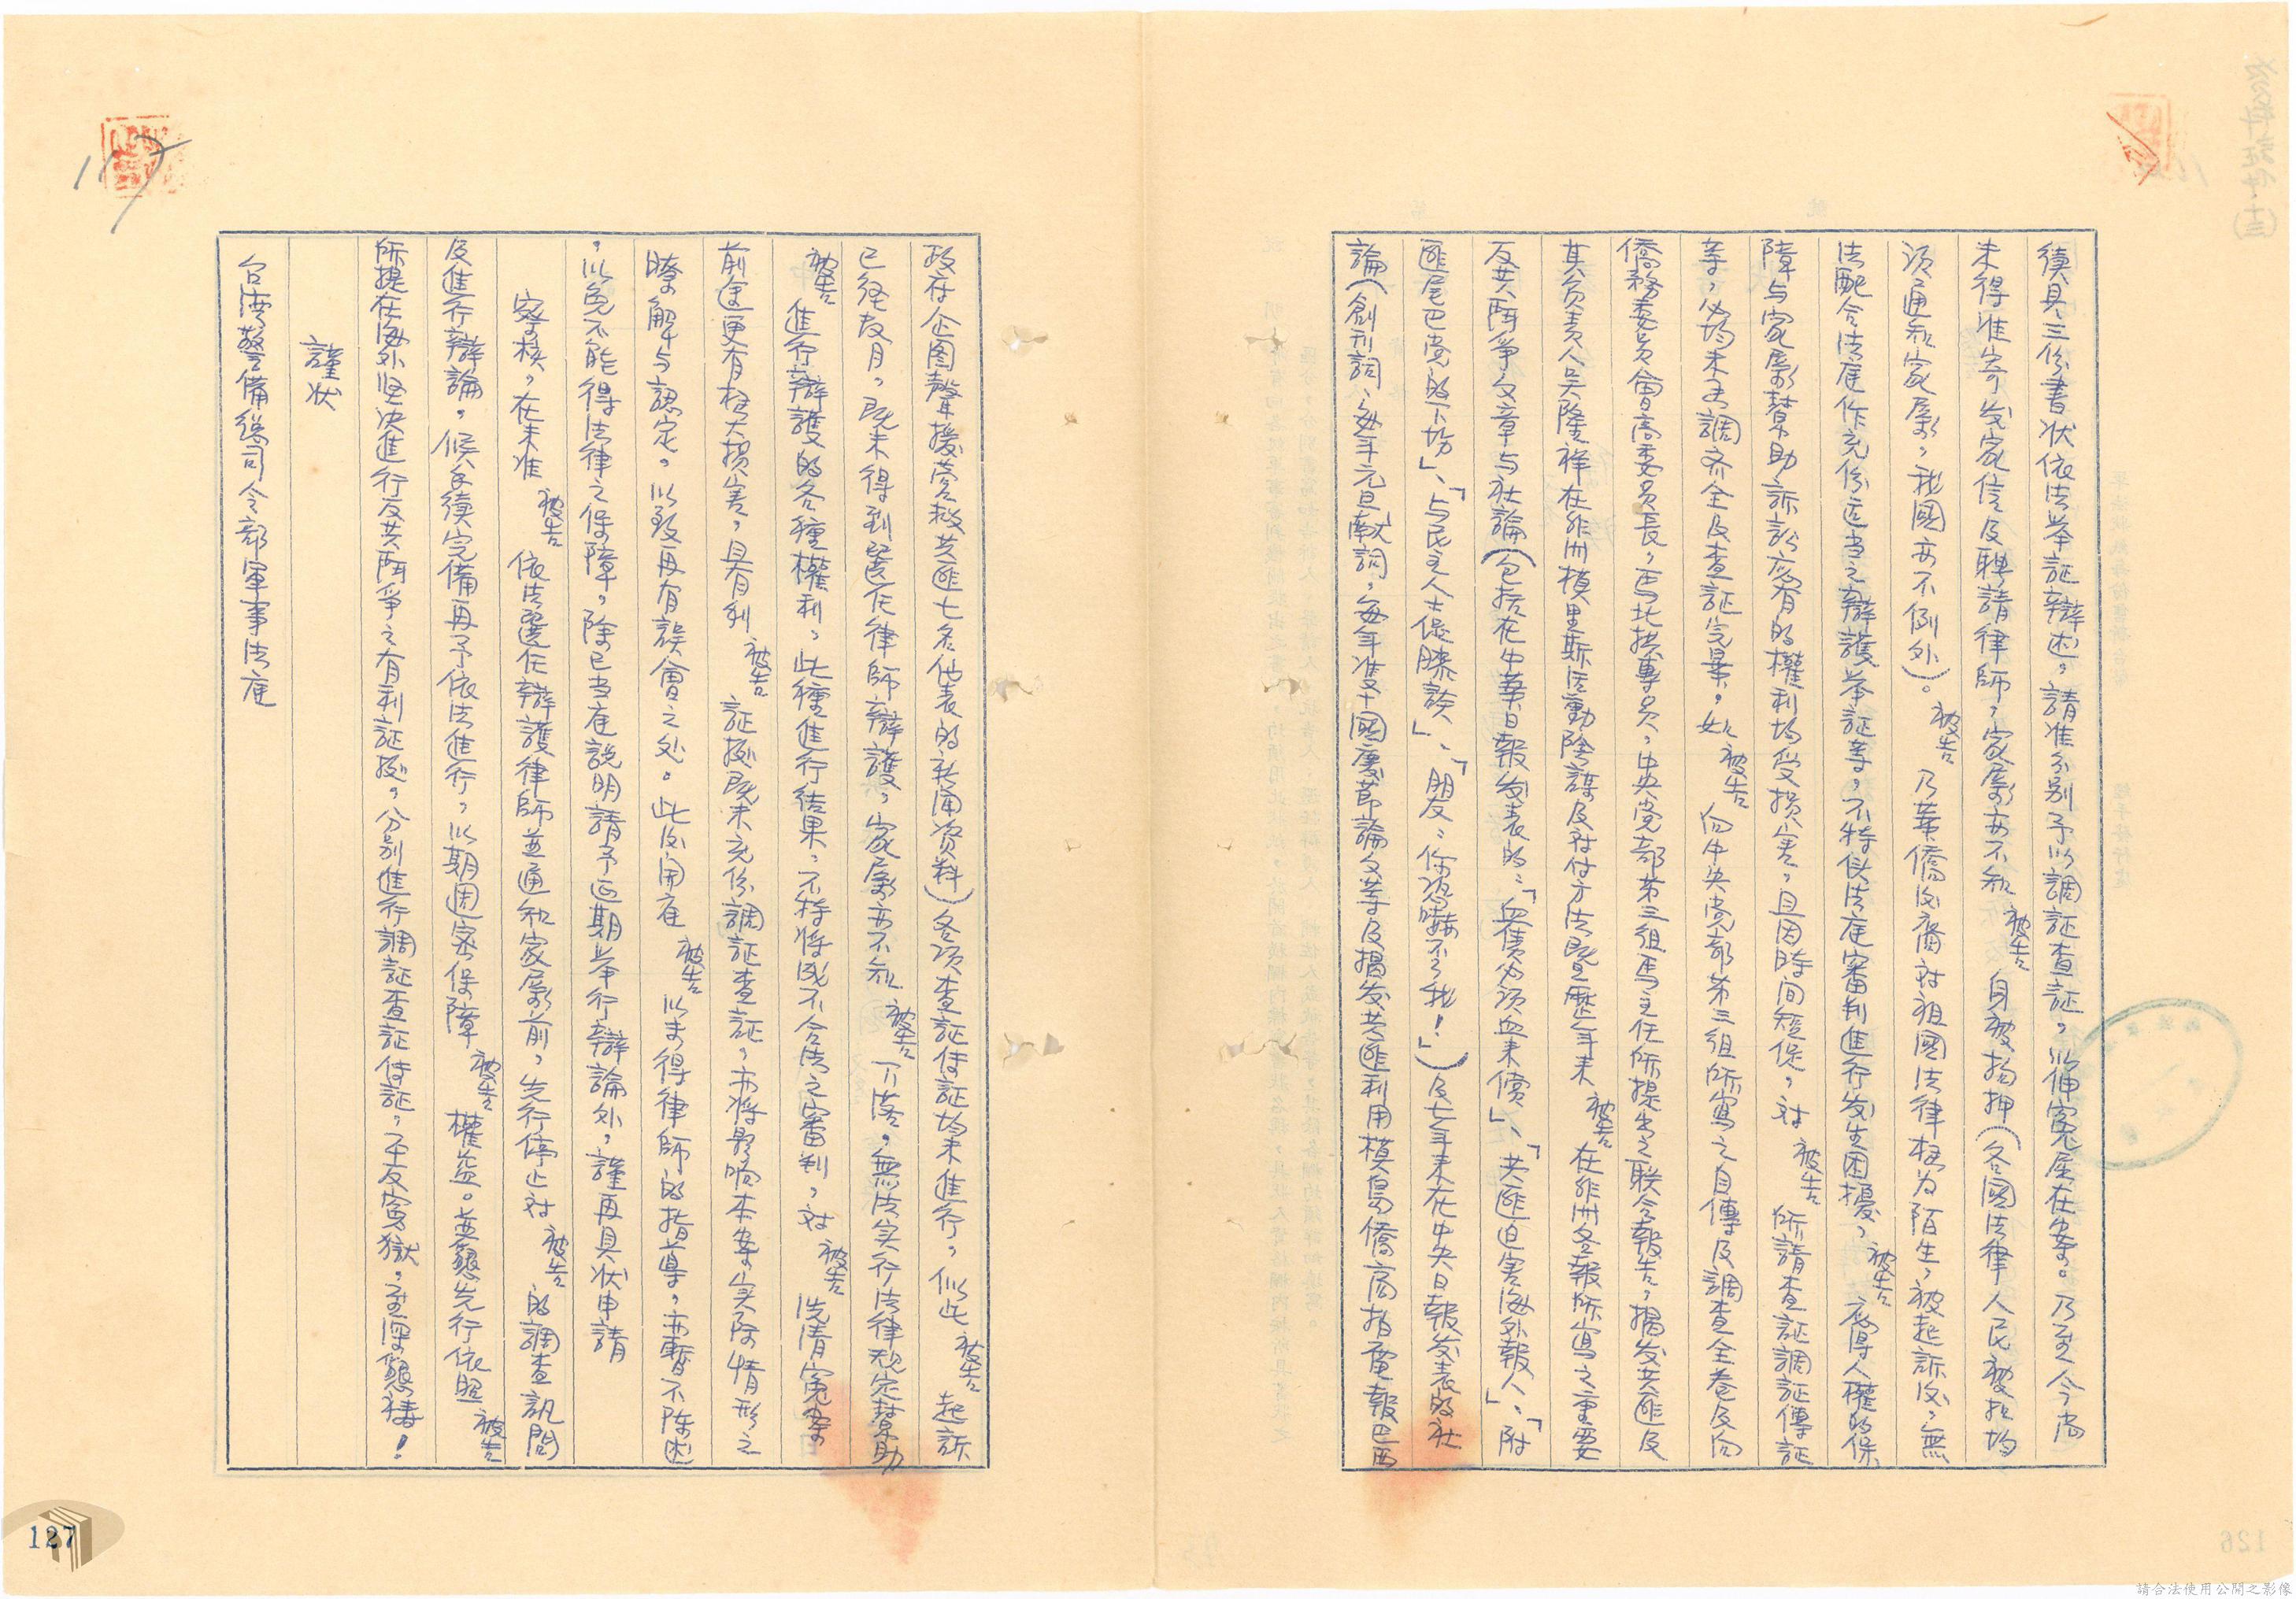 續具三份書狀依法举証辯述，請准分别予以調証查証，以伸寃屈在案。乃至今尚
未得准寄发家信及聘請律師，家屬亦不知被告身被拘押（各國法律人民被抅均
須通知家屬，我國亦不例外）。被告乃華僑後裔对祖國法律極为陌生，被起訴後，無
法配合法庭作充份适当之辯護举証等，不特使法庭審判進行发生困擾，被告應得人權的保
障与家屬帮助訴訟應有的權利均受損害，且因時间短促，对被告所請查証調証傳証
等，必均未予調齐全及查証完畢。如被告向中央党部第三組所寫之自傳及調查全卷及向
僑務委員會高委員長，
其负责人吳隆祥在非洲模里斯活動陰謀及对付方法既歷年来被告在非洲各報所寫之重要
反共鬥爭文章与社論（包括在中華日報发表的：「血債必須血来償」、「共匪迫害海外報人」、「附
匪尾巴党的下場」、「与民主人士促膝談」、「朋友：你恐嚇不了我！」）及七年来在中央日報发表的社
論（創刊詞、每年元旦献詞，每年双十國慶節論文等及揭发共匪利用模島僑商拍電報巴西
政府企图聲援营救共匪七名代表的
各項查証傳証均未進行，似此被告起訴
已经友月，既未得到選任律師辯護，家屬亦不知被告下落，無法实行法律規定帮助
被告進行辯護的各種權利，此種進行結果，不特將成不合法之審判，对被告洗清寃案
前途更有極大損害，且有利被告証据既未充份調証查証，亦將影响本案实际情形之
瞭解与認定，以致再有誤會之处。此次開庭被告以未得律師的指導，亦暫不陈述
，以免不能得法律之保障，除已当庭説明請予延期举行辯論外，謹再具状申請
察核，在未准被告依法選任辯護律師並通知家屬前，先行停止对被告的調查訊問
及進行辯論，候手續完備再予依法進行，以期周密保障被告權益。並懇先行依照被告
所提在海外坚决進行反共鬥爭之有利証据，分别進行調証查証傳証，平反寃獄，至深懇禱！
謹状
台湾警備総司令部軍事法庭
117
127
126
請合法使用公開之影像